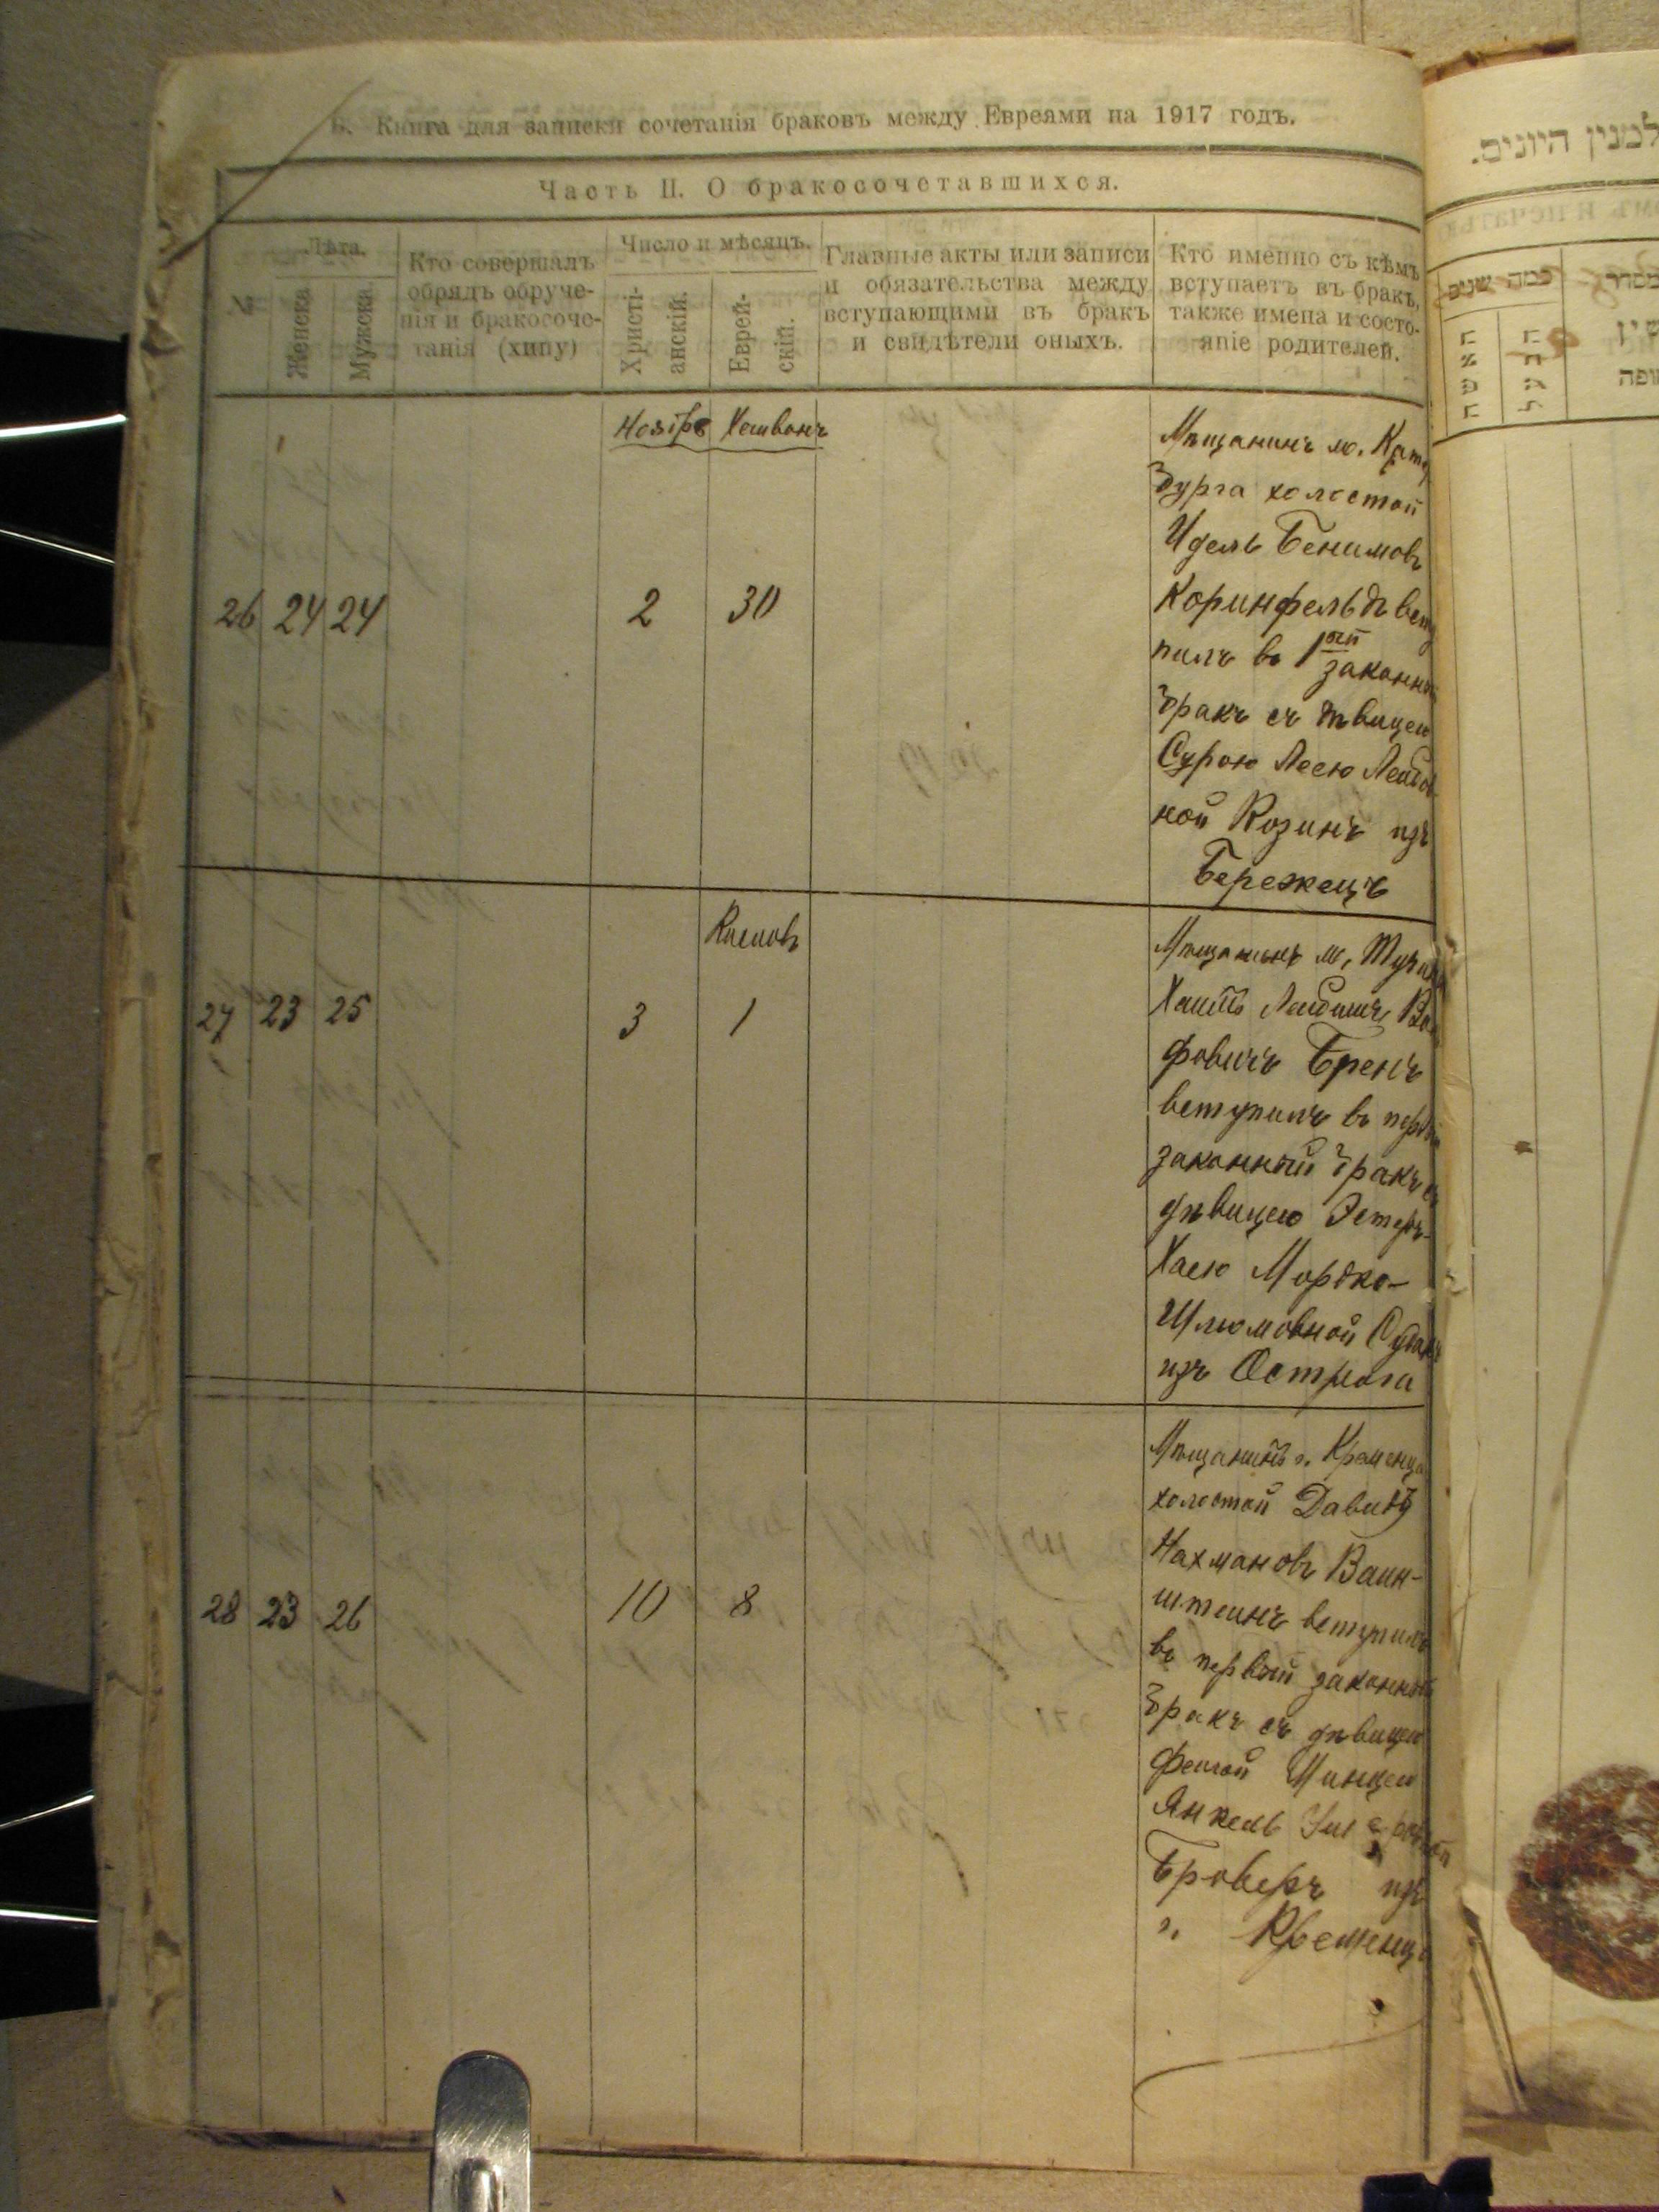 Б. Книга для записки сочетанія браковъ между Евреями на 1917 годъ.
Часть II. О бракосочетавшихся.
№
Лѣта.
Женска
Мужска
Кто совершалъ
обрядъ обруче-
нія и бракосоче-
танія (хипу)
Число и мѣсяцъ.
Христі-
анскій.
Еврей-
скій.
Главные акты или записи
и обязательства между
вступающими въ бракъ
и свидѣтели оныхъ.
Кто именно съ кѣмъ
вступаетъ въ бракъ,
также имена и состо-
яніе родителей.
Ноябрь Хешванъ
26 24 24 2 30
Мѣщанинъ м.
бурга холостой
Идель Бенимовъ
Коринфельдъ всту
пилъ въ 1ый законный
бракъ съ дѣвицею
Сурою Леею Лейбов
ной Розинъ изъ
Бережецъ
Кислевъ
27 23 25 3 1
Мѣщанинъ м.
Хаимъ Лейбишъ
фовичъ Бренъ
вступилъ въ первый
законный бракъ съ
дѣвицею Эстеръ-
Хаею Мордко-
Шлюмовной
изъ Острога
28 23 26 10 8
Мѣщанинъ г. Кременца
холостой Давидъ
Нахмановъ Ваин-
штеинъ вступилъ
въ первый законный
бракъ съ дѣвицею
Фейгой Минцею
Янкель
Броверъ изъ
г. Кременца
למנין היונים.
כמה שנים
האשה
הבעל